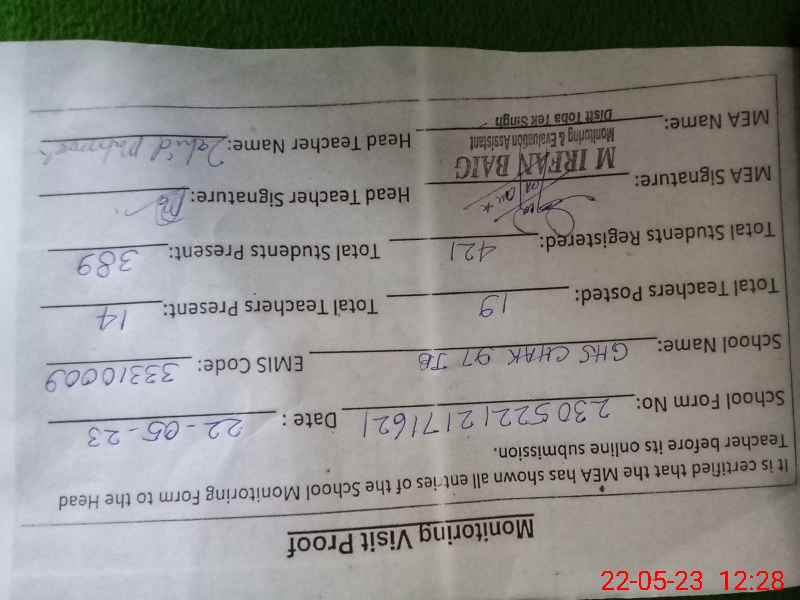 Monitoring Visit Proof
It is certified that the MEA has shown all entries of the School Monitoring Form to the Head
Teacher before its online submission.
School Form No: 23052212171621 Date : 22-05-23
School Name: GHS CHAK 97 JB EMIS Code: 33310009
Total Teachers Posted: 19 Total Teachers Present: 14
Total Students Registered: 421 Total Students Present: 389
MEA Signature: Head Teacher Signature:
M IRFAN BAIG
Monitoring & Evaluation Assistant
MEA Name: Head Teacher Name: Zahid
Distt Toba Tek Singh
22-05-23 12:28